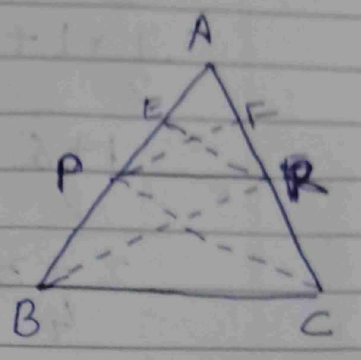 A
E F
P R
B C